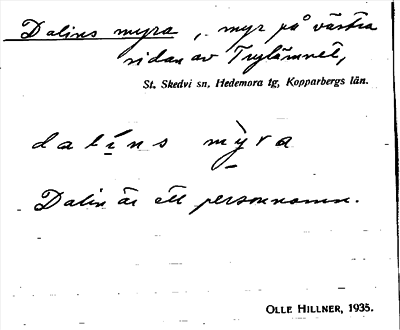 Dalins myra, myr på västra
sidan av Trylämnet,
St. Skedvi sn, Hedemora tg, Kopparbergs län.
dalíns mỳra
Dalin är ett personnamn.
OLLE HILLNER, 1935.